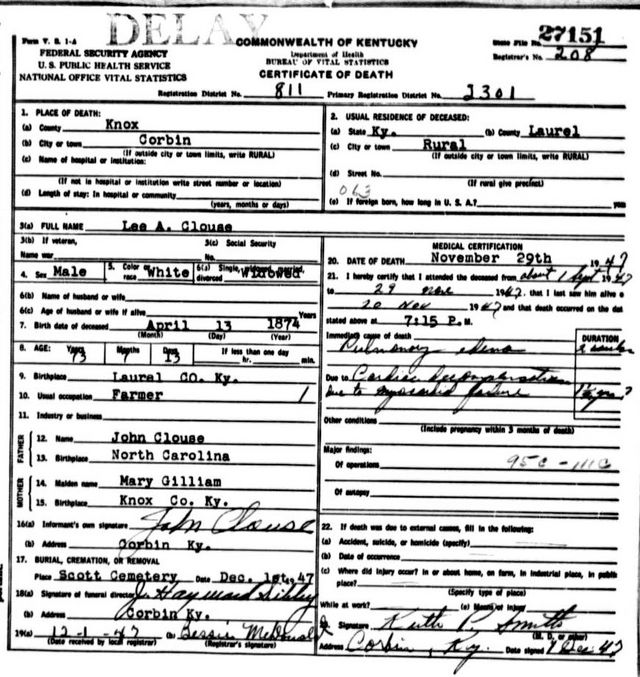 DELAY
Form V. S. 1-A
FEDERAL SECURITY AGENCY
U. S. PUBLIC HEALTH SERVICE
NATIONAL OFFICE VITAL STATISTICS
COMMONWEALTH OF KENTUCKY
Department of Health
BUREAU OF VITAL STATISTICS
CERTIFICATE OF DEATH
State File No. 27151
Registrar's No. 208
Registration District No. 811 Primary Registration District No. 2301
1. PLACE OF DEATH:
(a) County Knox
(b) City or town Corbin
(If outside city or town limits, write RURAL)
(c) Name of hospital or institution:
(If not in hospital or institution write street number or location)
(d) Length of stay: In hospital or community
(years, months or days)
2. USUAL RESIDENCE OF DECEASED:
(a) State Ky. (b) County Laurel
(c) City or town Rural
(If outside city or town limits, write RURAL)
(d) Street No.
(If rural give precinct)
063
(e) If foreign born, how long in U. S. A.?
3(a) FULL NAME Lee A. Clouse
3(b) If veteran, 3(c) Social Security
Name war No.
4. Sex Male 5. Color or race White 6(a) Single, widowed, married, divorced Widowed
6(b) Name of husband or wife
6(c) Age of husband or wife if alive Years
7. Birth date of deceased April 13 1874
(Month) (Day) (Year)
8. AGE: Years Months Days If less than one day
73 7 13 hr. min.
9. Birthplace Laurel CO. Ky.
10. Usual occupation Farmer
11. Industry or business
FATHER
12. Name John Clouse
13. Birthplace North Carolina
MOTHER
14. Maiden name Mary Gilliam
15. Birthplace Knox Co. Ky.
16(a) Informant's own signature John Clouse
(b) Address Corbin Ky.
17. BURIAL, CREMATION, OR REMOVAL
Place Scott Cemetery Date Dec. 1st, 47
18(a) Signature of funeral director J. Hayward Sibley
(b) Address Corbin Ky.
19(a) 12-1-47 (b) Bessie
(Date received by local registrar) (Registrar's signature)
MEDICAL CERTIFICATION
20. DATE OF DEATH November 29th 1947
21. I hereby certify that I attended the deceased from about 1 Sept 1947
to 29 Nov 1947, that I last saw him alive o
20 Nov 1947 and that death occurred on the dat
stated above at 7:15 P.M.
Immediate cause of death DURATION
Pulmonary edema 2 weeks
Due to Cardiac decompensation
Due to myocardial failure
Other conditions
(Include pregnancy within 3 months of death)
Major findings:
Of operations 95C - 111C
Of autopsy
22. If death was due to external causes, fill in the following:
(a) Accident, suicide, or homicide (specify)
(b) Date of occurrence
(c) Where did injury occur? In or about home, on farm, in industrial place, in public
place?
(Specify type of place)
While at work? (e) Means of injury
Signature Keith P. Smith
(M. D. or other)
Address Corbin, Ky. Date signed 1 Dec 47